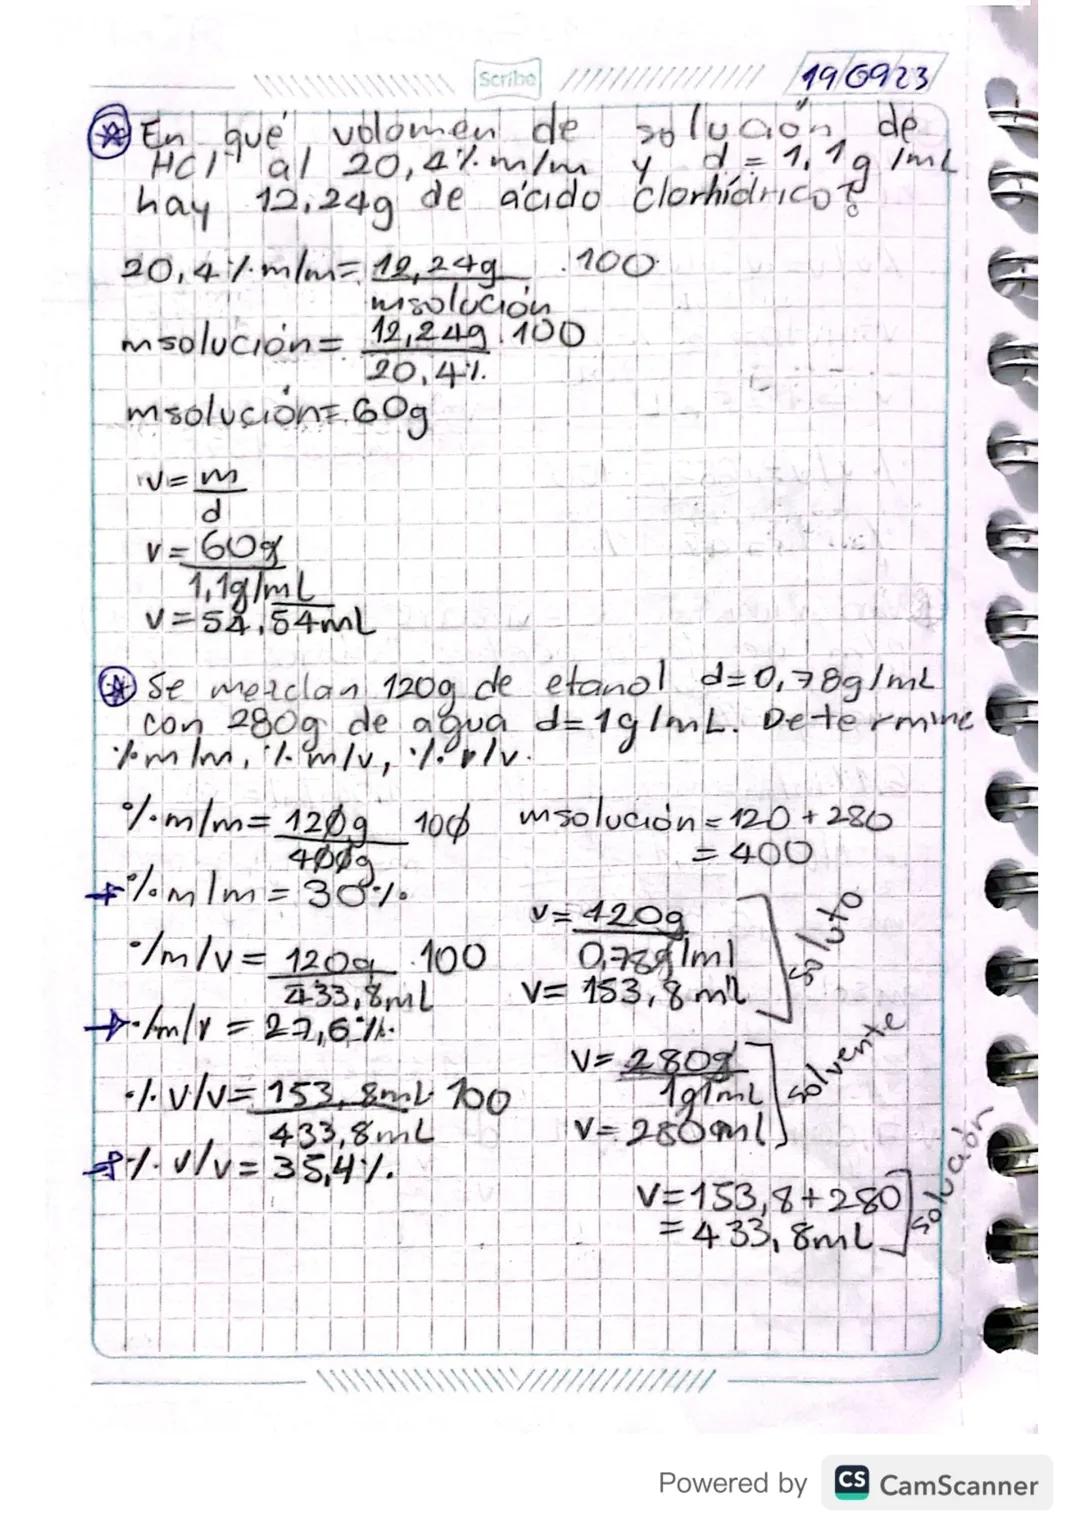 Scribe
19/09/23
En qué volumen de solución de
HCl al 20,4% m/m y d = 1,1g/mL
hay 12,24g de ácido clorhídrico?
20,4% m/m = 12,24g . 100
msolución
msolución = 12,24g . 100
20,4%
msolución = 60g
v = m
d
v = 60g
1,1g/mL
v = 54,54mL
Se mezclan 120g de etanol d=0,78g/mL
con 280g de agua d=1g/mL. Determine
%m/m, %m/v, %v/v.
%m/m = 120g 100
400g
msolución = 120 + 280
= 400
→ %m/m = 30%.
%m/v = 120g . 100
433,8mL
→ %m/v = 27,6%.
%v/v = 153,8mL . 100
433,8mL
→ %v/v = 35,4%.
v = 120g
0,78g/ml
v = 153,8 ml
soluto
v = 280g
1g/mL
v = 280ml
solvente
v = 153,8 + 280
= 433,8mL
solución
Powered by CS CamScanner